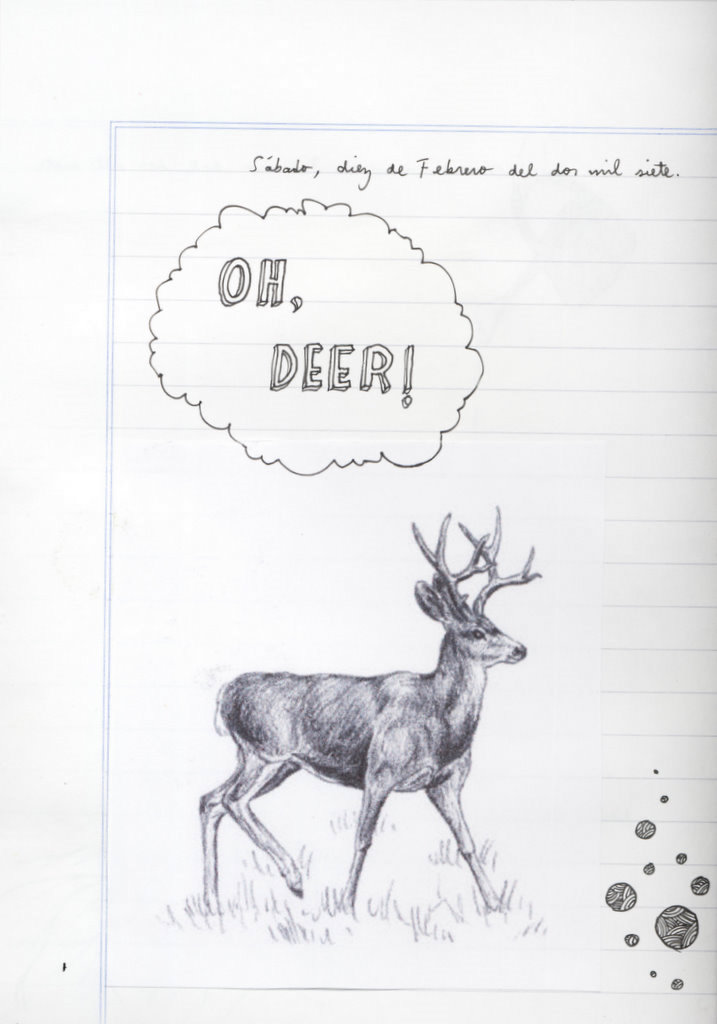 Sábado, diez de Febrero del dos mil siete.
OH,
DEER!
1